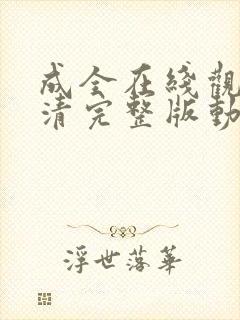 成全在綫觀
清完整版動
浮世落華